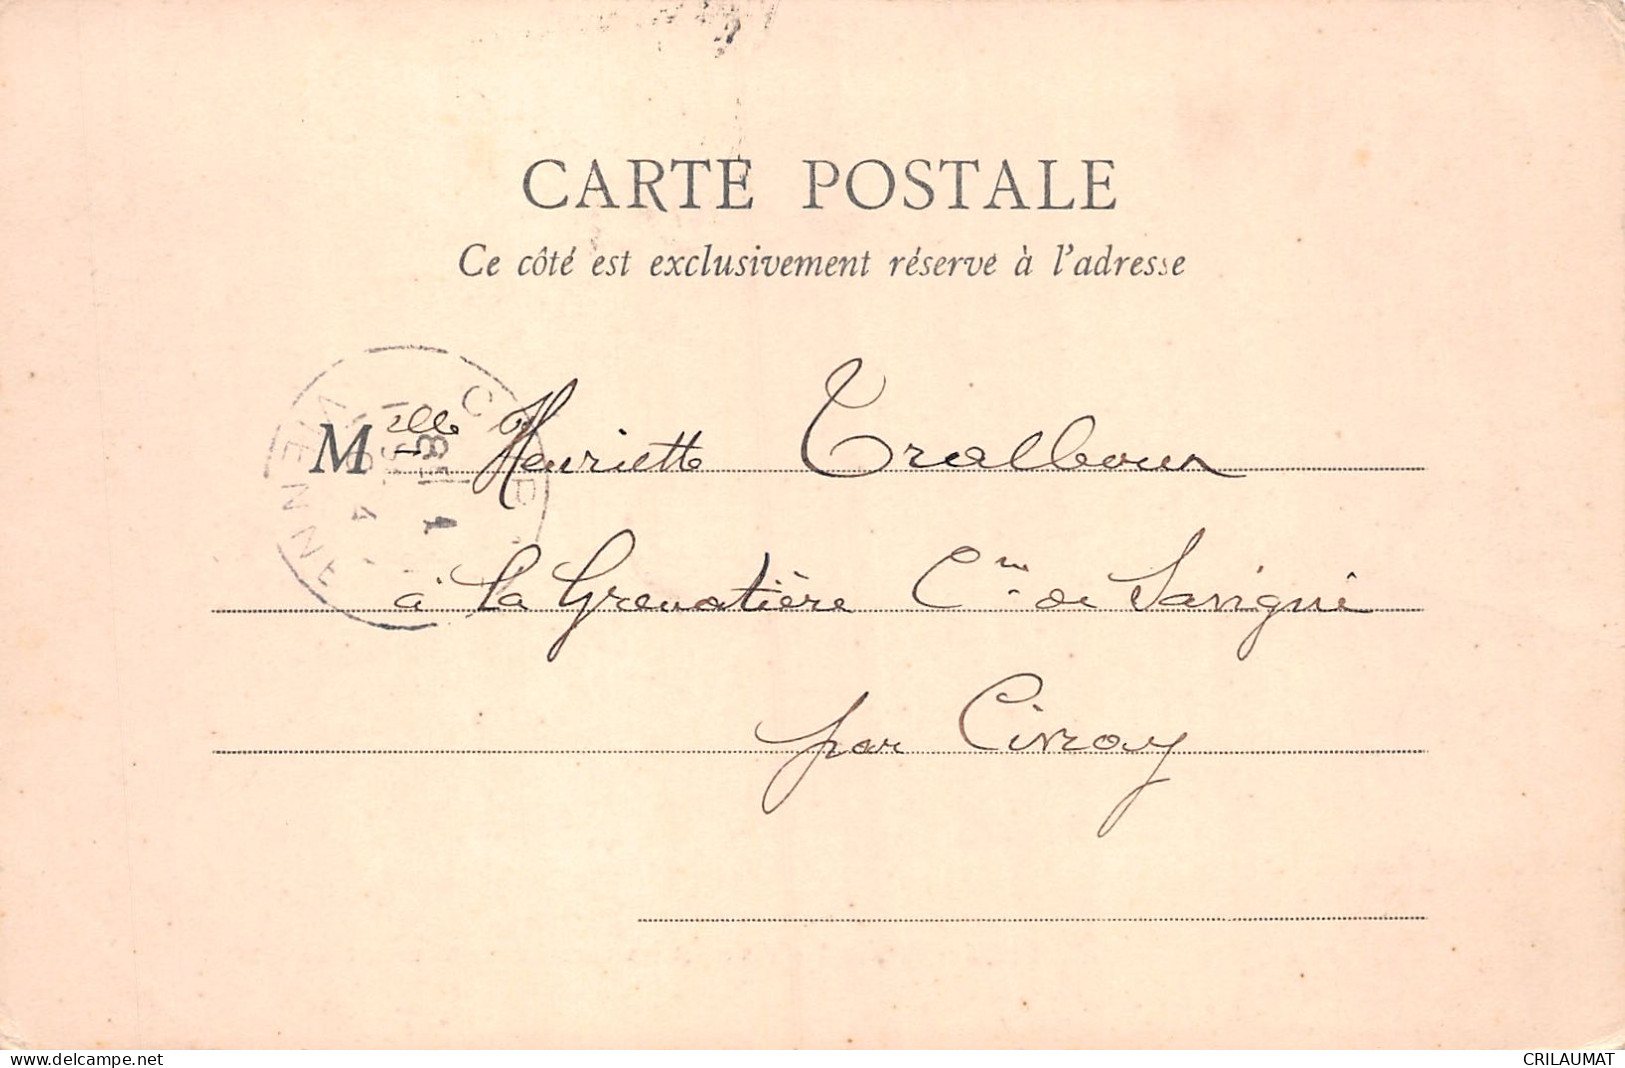 CARTE POSTALE
Ce côté est exclusivement réservé à l'adresse
Melle Henriette
à la Grenatière Cne de Savigné
par Civray
VIENNE
www.delcampe.net CRILAUMAT